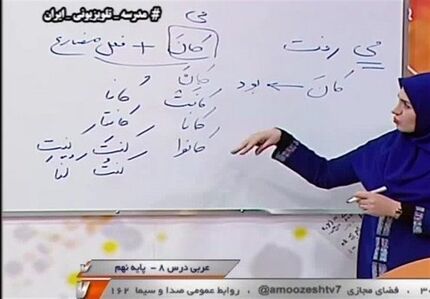 #مدرسه_تلویزیونی_ایران
می
کانَ + فعل مضارع
می رفت
کانَ ← بود
کانَ
کانَتْ
کانا
کانا
کانَتا
کانوا
کنتَ
کنتُ
کنا
عربی درس ۸ - پایه نهم
فضای مجازی @amoozeshtv7 ، روابط عمومی صدا و سیما ۱۶۲